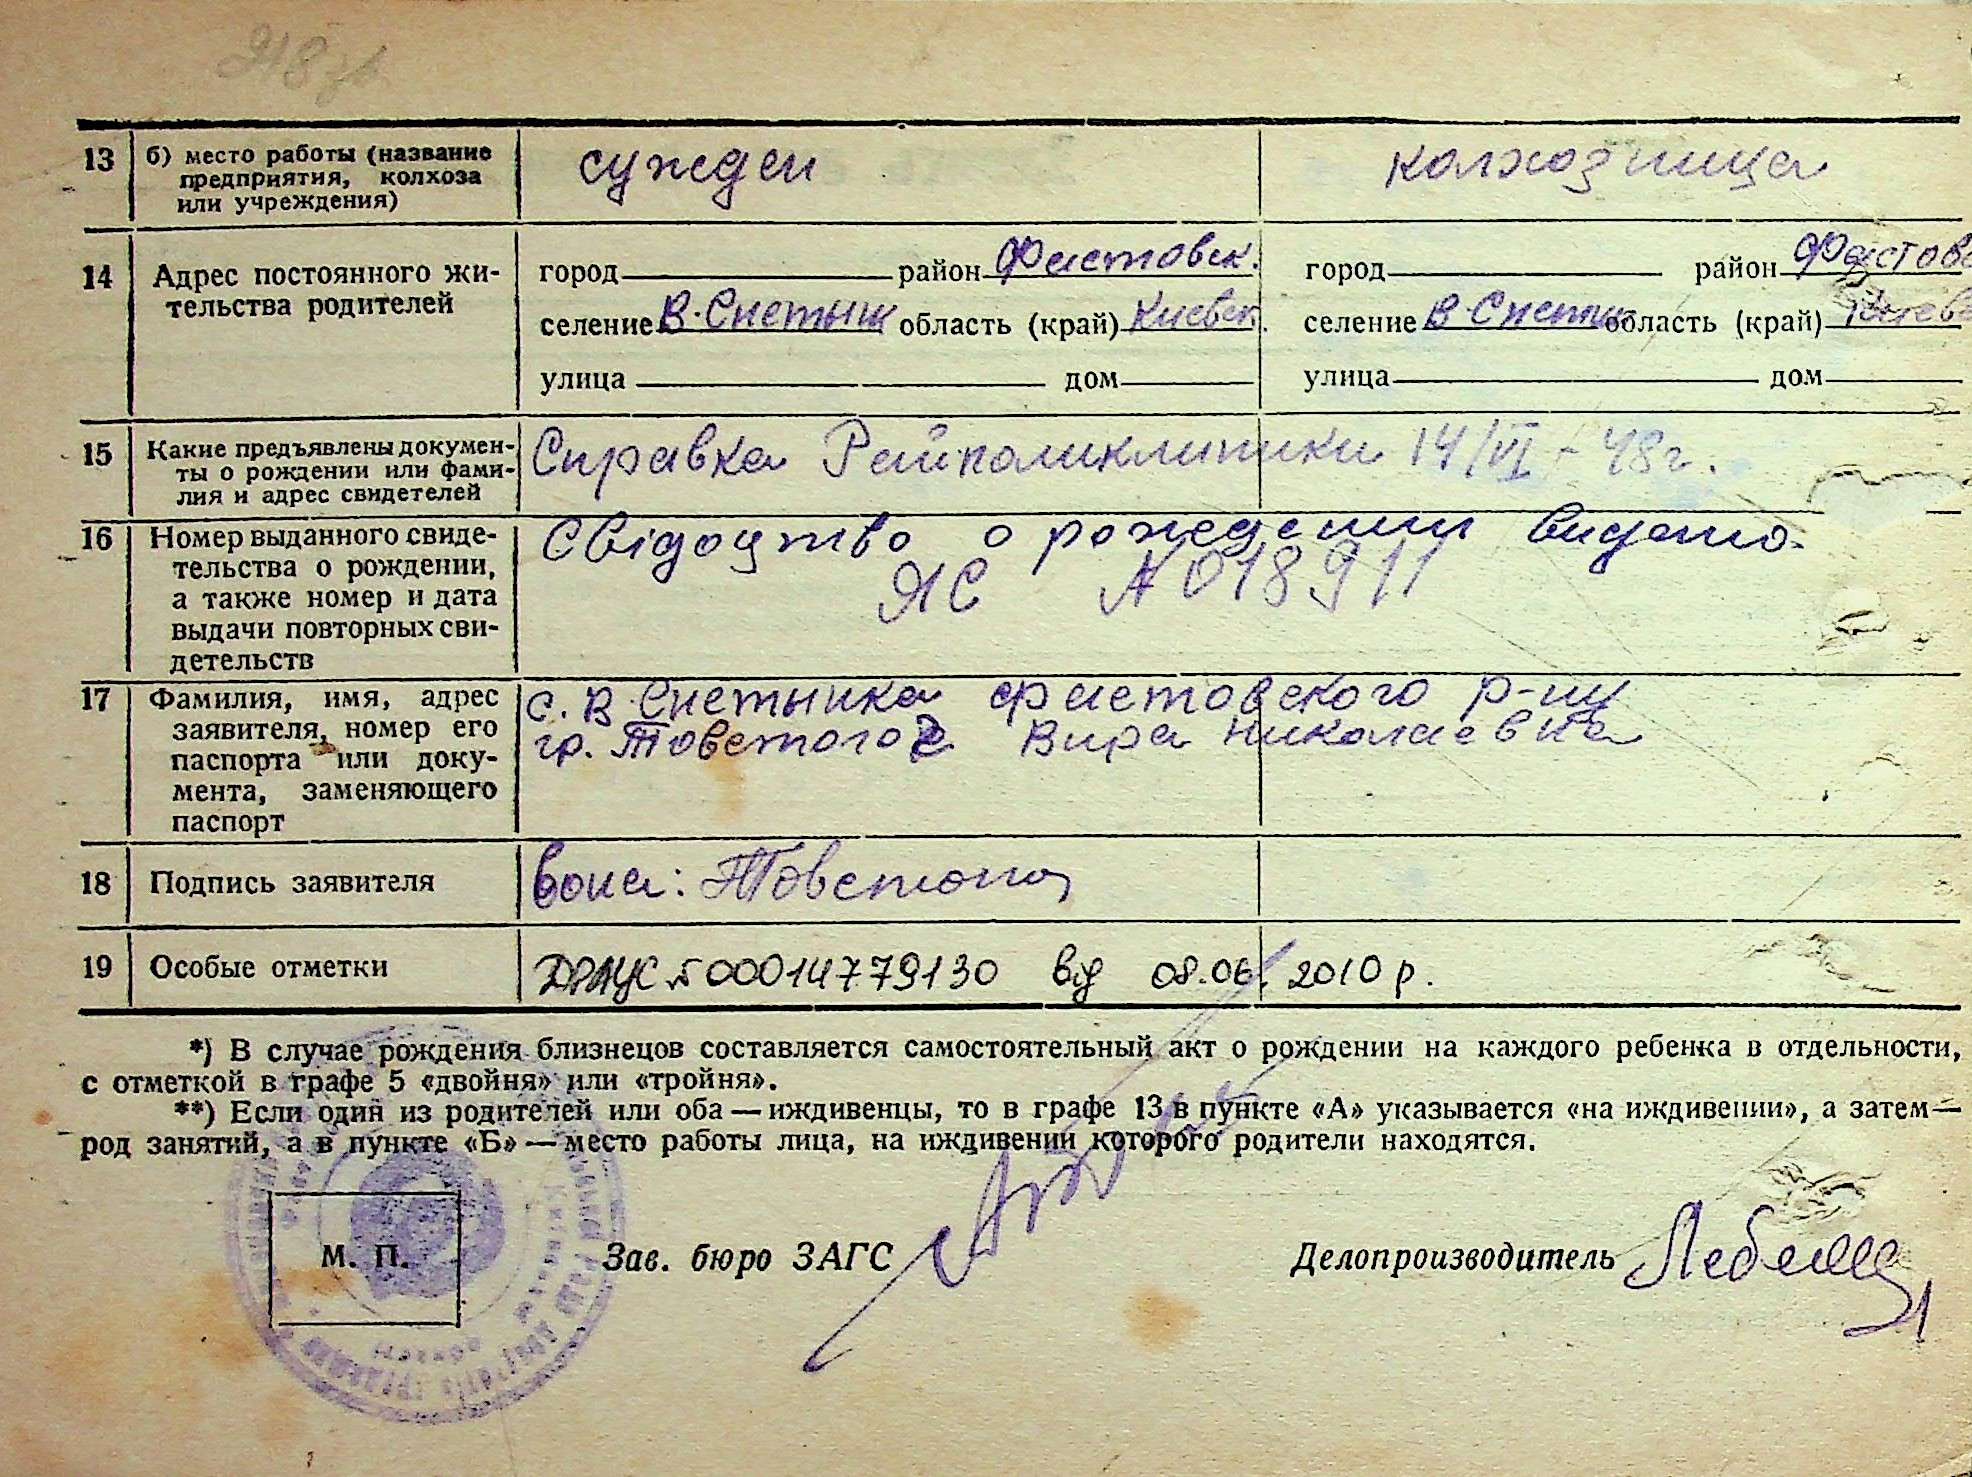 13 б) место работы (название предприятия, колхоза или учреждения) сужден колхозница
14 Адрес постоянного жительства родителей
город район Фастовск. город район Фастовс
селение В-Снетын область (край) Киевск. селение В-Снетин область (край) Киевс
улица дом улица дом
15 Какие предъявлены документы о рождении или фамилия и адрес свидетелей Справка Райполиклиники 14/VI-48г.
16 Номер выданного свидетельства о рождении, а также номер и дата выдачи повторных свидетельств Свідоцтво о рождении видано.
ЯС №018911
17 Фамилия, имя, адрес заявителя, номер его паспорта или документа, заменяющего паспорт с. В Снетынка фастовского р-ну
гр. Вира Николаевна
18 Подпись заявителя вона:
19 Особые отметки 00014779130 від 08.06.2010р.
*) В случае рождения близнецов составляется самостоятельный акт о рождении на каждого ребенка в отдельности,
с отметкой в графе 5 «двойня» или «тройня».
**) Если один из родителей или оба — иждивенцы, то в графе 13 в пункте «А» указывается «на иждивении», а затем—
род занятий, а в пункте «Б» — место работы лица, на иждивении которого родители находятся.
М. П. Зав. бюро ЗАГС Делопроизводитель